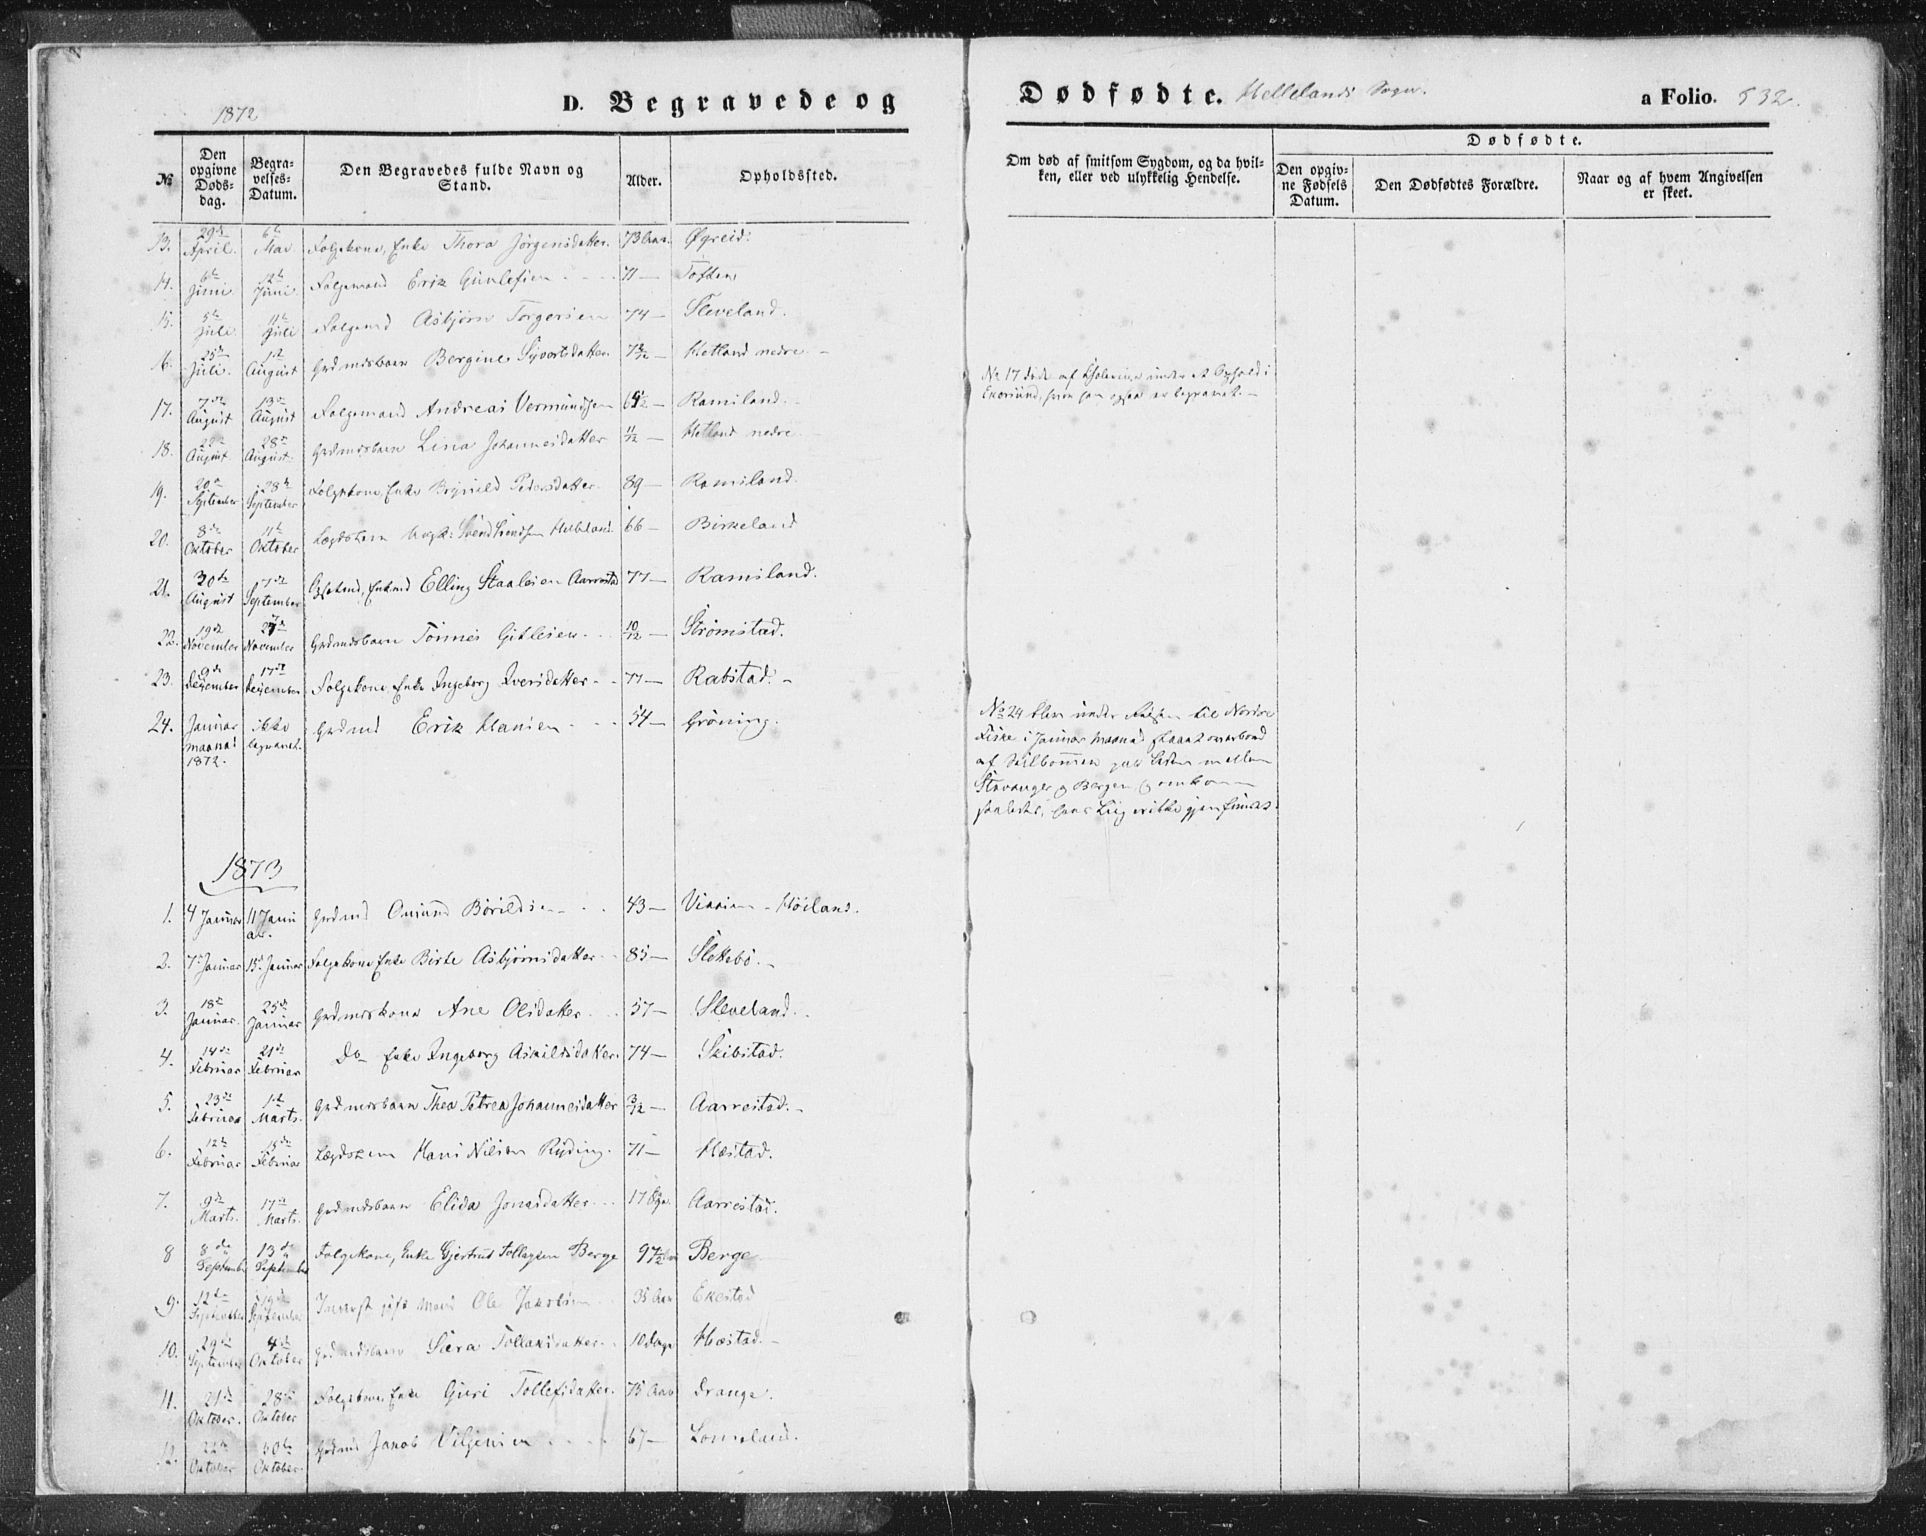 1872
D. Begravede og Dødfødte. Hellelands Sogn. a Folio. 532.
№ | Den opgivne Døds-dag. | Begra-velses-Datum. | Den Begravedes fulde Navn og Stand. | Alder. | Opholdssted. | Om død af smitsom Sygdom, og da hvil-ken, eller ved ulykkelig Hendelse. | Dødfødte. | Den opgiv-ne Fødsels Datum. | Den Dødfødtes Forældre. | Naar og af hvem Angivelsen er skeet.
13. 29de April. 6te Mai Folgekone, Enke Thora Jörgensdatter. 73 Aar. Øgreid.
14. 6te Juni 12te Juni Folgemand Erik Gunlefsen 71 — Toften
15. 5te Juli 11te Juli Folgemd Asbjörn Torgersen 74 — Sleveland.
16. 25de Juli. 1st August Grdmdsbarn Bergine Sivertsdatter. Hetland nedre. —
17. 7de August 13de August Folgemand Andreas Vermundsen Ramsland. —
No 17 döde af under et Ophold i
Ekersund, hvor han ogsaa er begravet. —
18. August 28de August. Grdmdsbarn Lina Johannesdatter 11/12 — Hetland nedre.
19. 20de September 28de September Folgekone, Enke Pedersdatter. 89 — Ramsland.
20. 8de Oktober 11te Oktober Lægdslem Svend Svendsen Helleland. 66 — Birkeland
21. 30te August 7de September Enkemd Elling Staalesen Aarrestad 77 — Ramsland.
22. 19de November 27de November Grdmdsbarn Tönnes Gitlesen 10/12 — Strömstad.
23. 9de December 17de December Folgekone, Enke Ingeborg Iversdatter 77 — Rabstad. —
24. Januar maaned 1872. ikke begravet. Grdmd Erik Hansen 54 — Gröning.
No 24 blev under Reisen til Nordre
Fiske i Januar Maaned slaaet overbord
af Seilbommen paa Leden mellem
Stavanger og Bergen og omkom
saaledes, hans Liig er ikke gjenfundet.
1873
1. 4 Januar 11 Januar. Grdmd Omund Börildsen 43 — Höiland.
2. 7de Januar 15de Januar Folgekone, Enke Birte Asbjörnsdatter 85 — Slettebö. —
3. 18de Januar. 25de Januar Grdmdskone Ane Olsdatter 57 — Sleveland.
4. 14de Februar 21de Februar Do Enke Ingeborg Askildsdatter. 74 — Skibstad.
5. 23de Februar 1st Marts. Grdmdsbarn Thea Petrea Johannesdatter 3/12 — Aarrestad. —
6. 12te Februar 18de Februar Lægdslem Hans Nilsen Ryding. 71 — Hæstad.
7. 9de Marts. 17de Marts. Grdmdsbarn Elida Jonasdatter 17 Dge. Aarrestad.
8 8de September 13de September Folgekone, Enke Gjertrud Tollagsen Berge 97 1/2 Aar Berge
9. 12te September 19de September Inderst gift Mand Ole Jakobsen 35 Aar Ekestad
10. 29de September 4de Oktober Grdmdsbarn Sara Tollaksdatter 10 dage Hæstad. —
11. 21de Oktober. 28de Oktober Folgekone, Enke Guri Tollefsdatter. 75 Aar Drange.
12. 22de Oktober 30te Oktober. Grdmd Jakob Viljensen 67 — Lomeland.